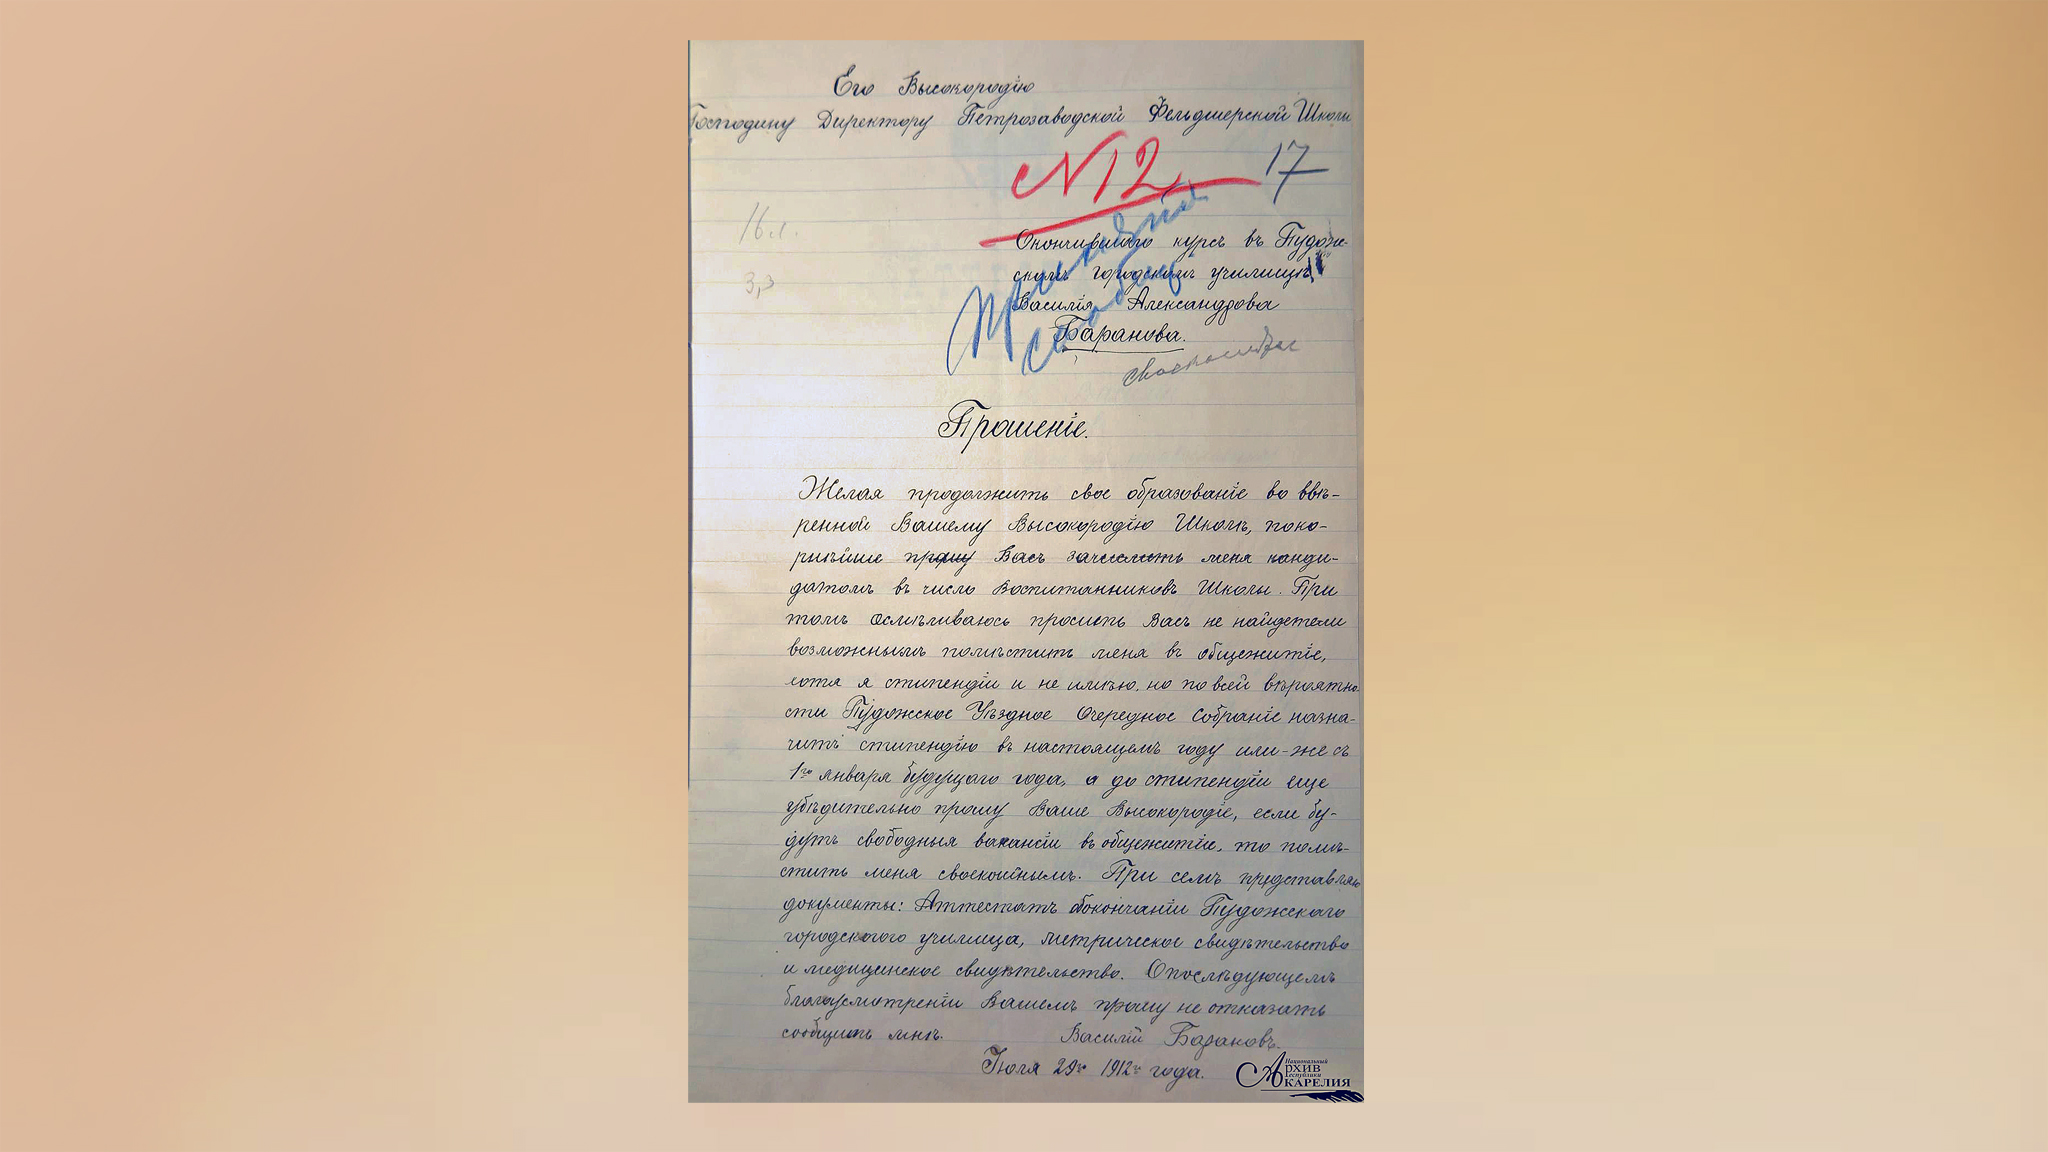 Его Высокородію
Господину Директору Петрозаводской Фельдшерской Школы
№12 17
16 л.
3,3
Окончившаго курсъ въ Пудож-
скомъ городскомъ училищѣ
Василія Александрова
Баранова.
своекошт
Прошеніе.
Желая продолжить свое образованіе во ввѣ-
ренной Вашему Высокородію Школѣ, поко-
рнѣйше прошу Васъ зачислить меня канди-
датомъ въ число воспитанниковъ Школы. При
томъ осмѣливаюсь просить Васъ не найдетели
возможнымъ помѣстить меня въ общежитіе,
хотя я стипендіи и не имѣю, но по всей вѣроятно-
сти Пудожское Уѣздное Очередное Собраніе назна-
читъ стипендію въ настоящемъ году или-же съ
1го января будущаго года, а до стипендіи еще
убѣдительно прошу Ваше Высокородіе, если бу-
дутъ свободныя вакансіи въ общежитіе, то помѣ-
стить меня своекоштнымъ. При семъ представляю
документы: Аттестатъ обокончаніи Пудожскаго
городского училища, метрическое свидѣтельство
и медицинское свидѣтельство. Опослѣдующемъ
благоусмотреніи Вашемъ прошу не отказать
сообщить мнѣ. Василій Барановъ.
Іюля 29го 1912го года.
Национальный
Архив
Республики
Карелия